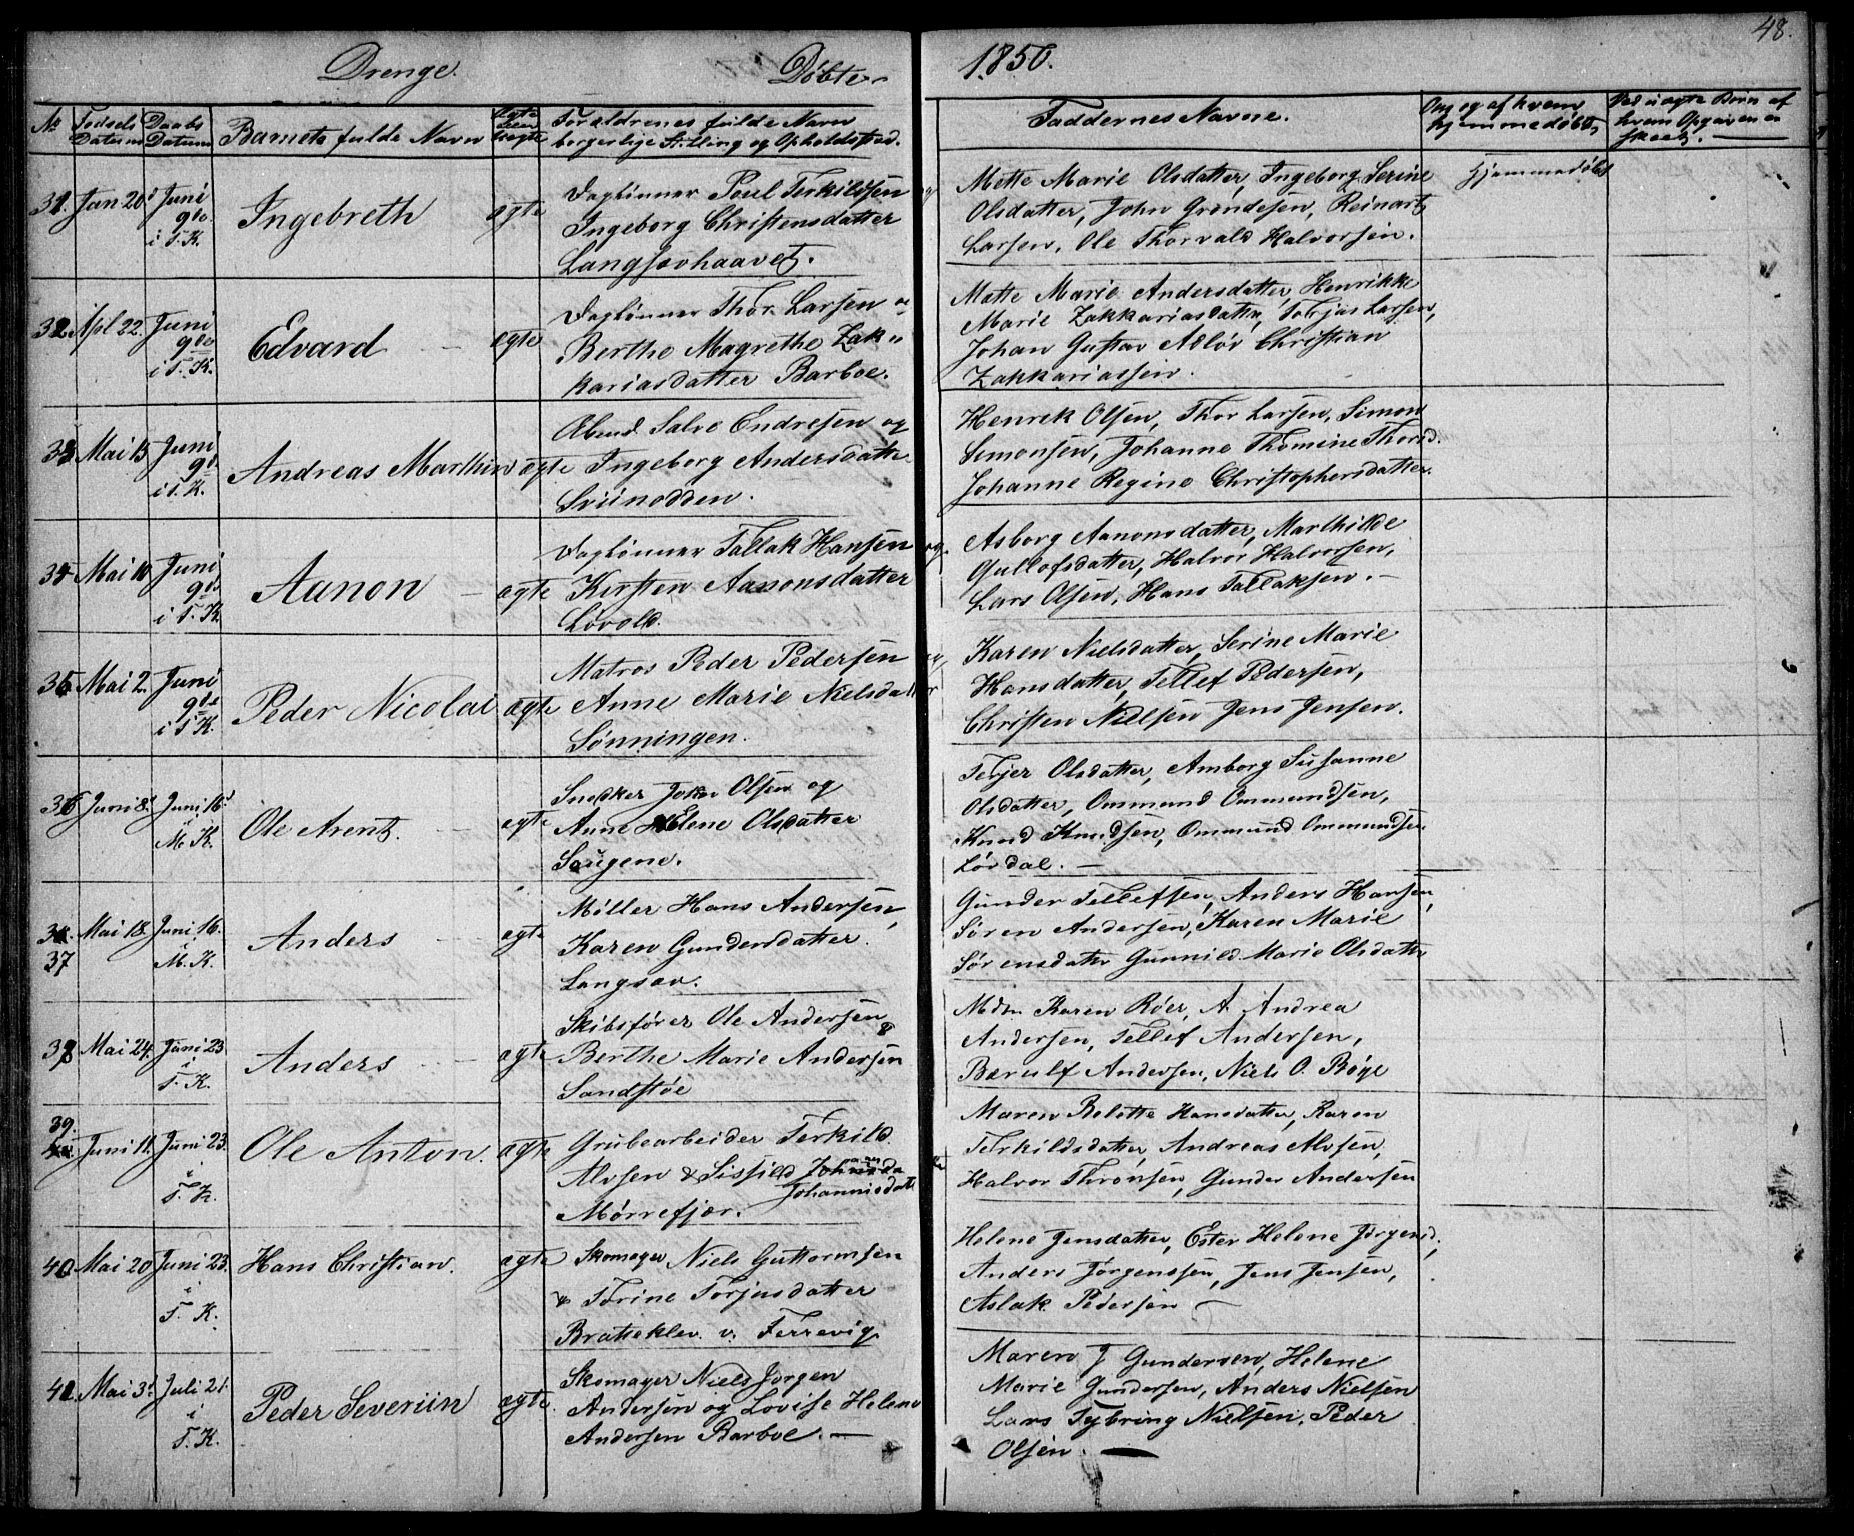 48.
Drenge. Døbte 1850.
No Fødsels Datum Daabs Datum Barnets fulde Navn Ægte eller Uægte Forældrenes fulde Navn borgerlige Stilling og Opholdsted. Faddernes Navne. Om og af hvem hjemmedøbt, Ved uægte Børn af hvem Opgaven er skeet.
31. Jan 20 Juni 9de i T. K. Ingebreth ægte
Dagлønner Poul Terkildsen og
Ingeborg Christensdatter
Langsævhaavet.
Mette Marie Olsdatter, Ingeborg Serine
Olsdatter, John Grundesen, Reinart
Larsen, Ole Thorvald Halvorsen.
Hjemmedøbt
32. Apl 22. Juni 9de i T. K. Edvard ægte
Dagлønner Thor Larsen og
Berthe Magrethe Zak„
kariasdatter Barboe.
Mette Marie Andersdatter Henrikke
Marie Zakkariasdatter, Torjus Larsen,
Johan Gustav Adløv Christian
Zakkariassen.
33 Mai 15 Juni 9de i T. K. Andreas Marthin ægte
Salve Endresen og
Ingeborg Andersdatter
Sviinodden.
Henrik Olsen, Thor Larsen, Simon
Simonsen, Johanne Thomine Thorsd.
Johanne Regine Christophersdatter.
34 Mai 10 Juni 9de i T. K. Aanon ægte
Dagлønner Tallak Hansen og
Kirsten Aanonsdatter
Lovold.
Asborg Aanonsdatter, Marthilde
Gullofsdatter, Halvor Halvorsen,
Lars Olsen, Hans Tallaksen.
35 Mai 2. Juni 9de i T. K. Peder Nicolai ægte
Matros Peder Pedersen
Anne Marie Nielsdatter
Sønningen.
Karen Nielsdatter, Serine Marie
Hansdatter, Tellef Pedersen,
Christen Nielsen Jens Jensen.
36 Juni 8 Juni 16 i M. K. Ole Arent. ægte
Snedker John Olsen og
Anne Helene Olsdatter
Songene.
Terjer Olsdatter, Amborg Susanne
Olsdatter, Ommund Ommundsen,
Knud Knudsen, Ommund Ommundsen
Lørdal.
37 Mai 18. Juni 16. i M. K. Anders ægte
Møller Hans Andersen,
Karen Gundersdatter.
Langsæv.
Gunder Tellefsen, Anders Hansen,
Søren Andersen, Karen Marie
Sørensdatter Gunnild Marie Olsdatter
38 Mai 24. Juni 23 i T. K. Anders ægte
Skibsfører Ole Andersen &
Berthe Marie Andersen
Sandstøe
Mdm Karen Røer, A. Andrea
Andersen, Tellef Andersen,
Børulf Andersen, Niels O. Bøye
39. Juni 11. Juni 23. i T. K. Ole Anton. ægte
Grubearbeider Terkild
Alvsen & Sissild Johannisdatt
Mørrefjær.
Maren Belotte Hansdatter, Karen
Terkildsdatter, Andreas Alvsen,
Halvor Thronsen, Gunder Andersen
40 Mai 20 Juni 23. i T. K. Hans Christian. ægte
Skomager Niels Guttormsen
& Torine Torjusdatter
Bratteklev v. Terrevig
Helene Jensdatter, Ester Helene Jørgensd.
Anders Jørgenssen, Jens Jensen,
Aslak Pedersen
41. Mai 3. Juli 21. i T. K. Peder Severiin ægte.
Skomager Niels Jørgen
Andersen og Lovise Helene
Andersen Barboe.
Maren J Gundersen, Helene
Marie Gundersen, Anders Nielsen
Lars Tybring Nielsen, Peder
Olsen.